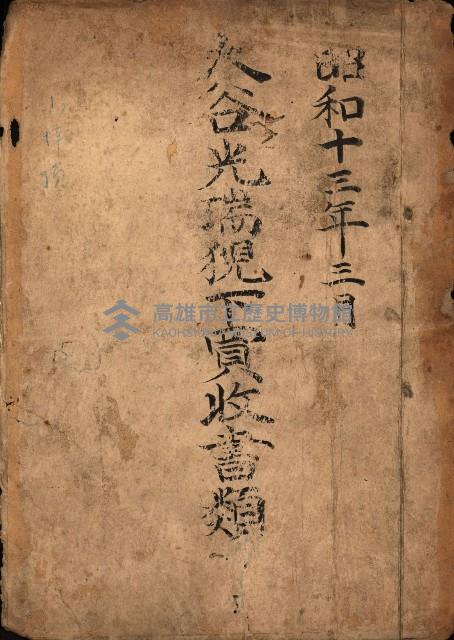 昭和十三年三月
大谷光瑞猊下買收書類
高雄市立歷史博物館
KAOHSIUNG MUSEUM OF HISTORY